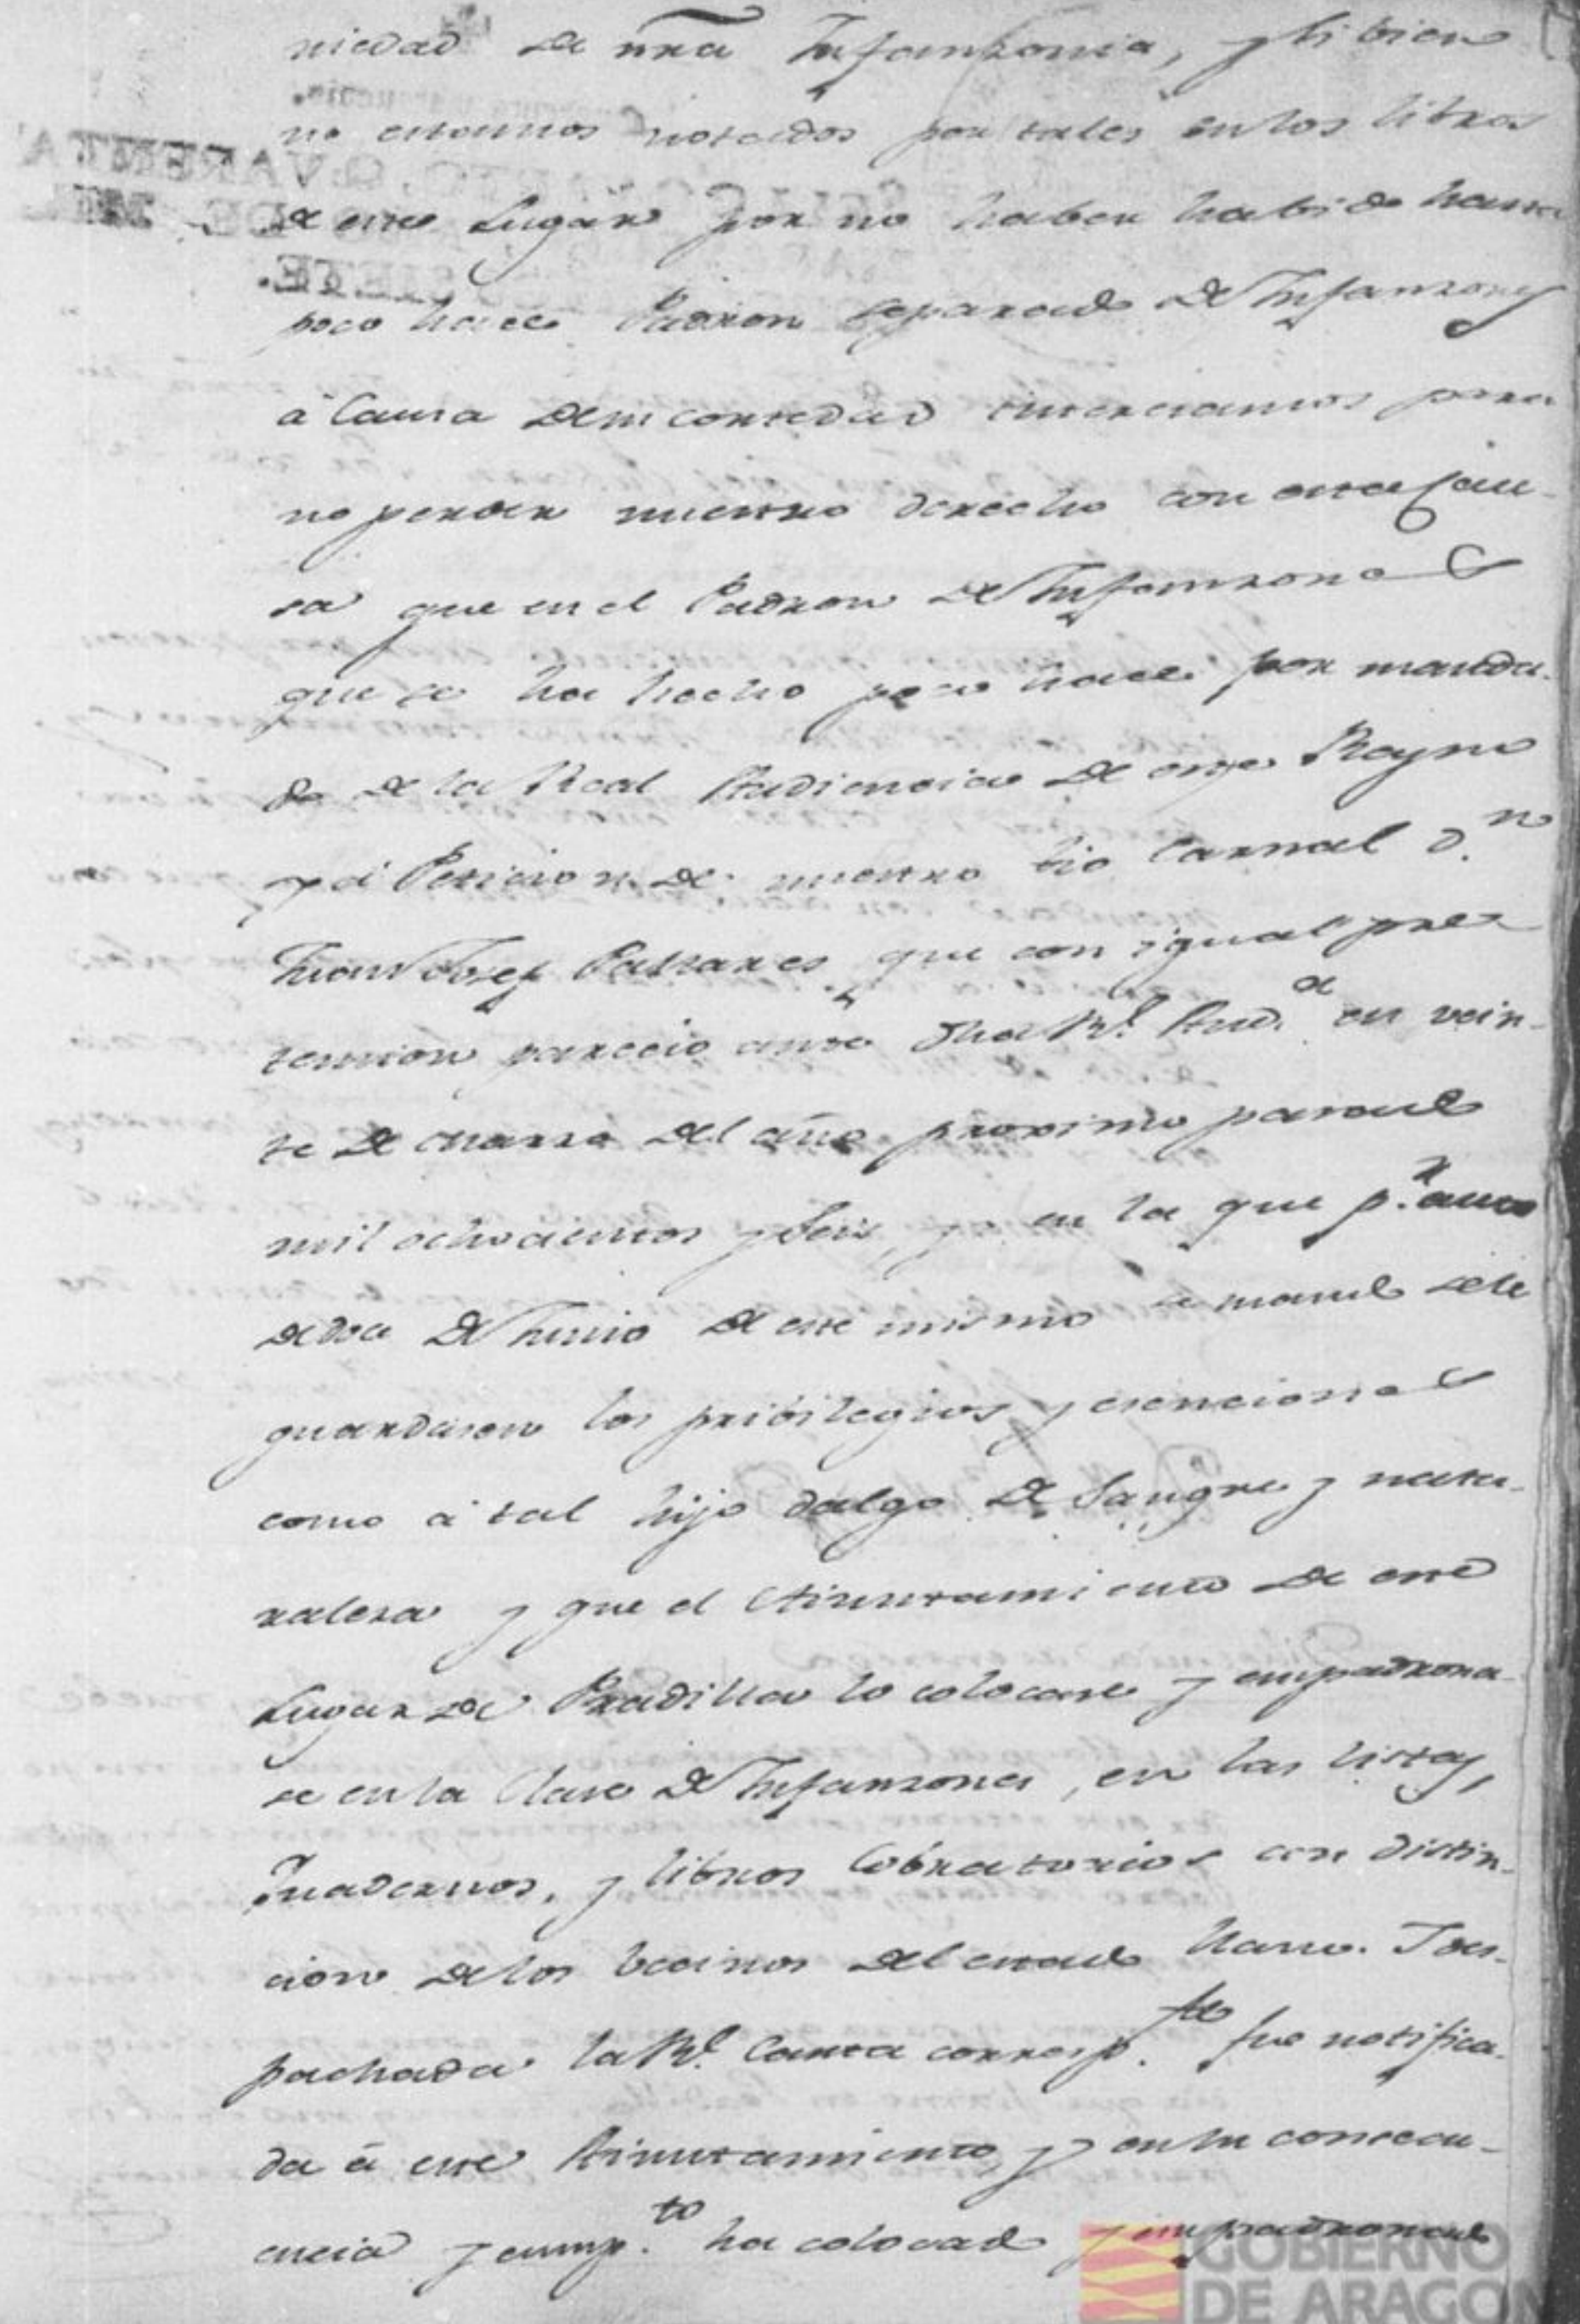 niedad de nrã Infanzonia, y si bien
no estamos notados por tales en los libros
de este Lugar por no haber habido hasta
poco hace Padron separado de Infanzones
à causa de su cortedad
no perder nuestro derecho con esta cau-
sa que en el Padron de Infanzones
que se ha hecho poco hace por manda-
do de la Real Audiencia de este Reyno
y á Peticion de nuestro tio carnal D.n
Juan Josef Pallares que con igual pre
tension parecio ante dha Rl. Aud.a en vein-
te de Marzo del año proximo pasado
mil ochocientos y seis, y en la que p.r auto
de doce de Junio de este mismo se mandó se le
guardasen los pribilegios y esenciones
como á tal hijo dalgo de Sangre y natu-
raleza y que el Aiuntamiento de este
Lugar de Pradilla lo colocase y empadrona-
se en la clase de Infanzones, en las listas,
Quadernos, y libros Cobratorios con distin-
cion de los vecinos del estado llano. I des-
pachada la Rl. Carta corresp.te fue notifica-
da á este Aiuntamiento, y en su consecu-
encia y cump.to ha colocado y empadronado
GOBIERNO
DE ARAGON